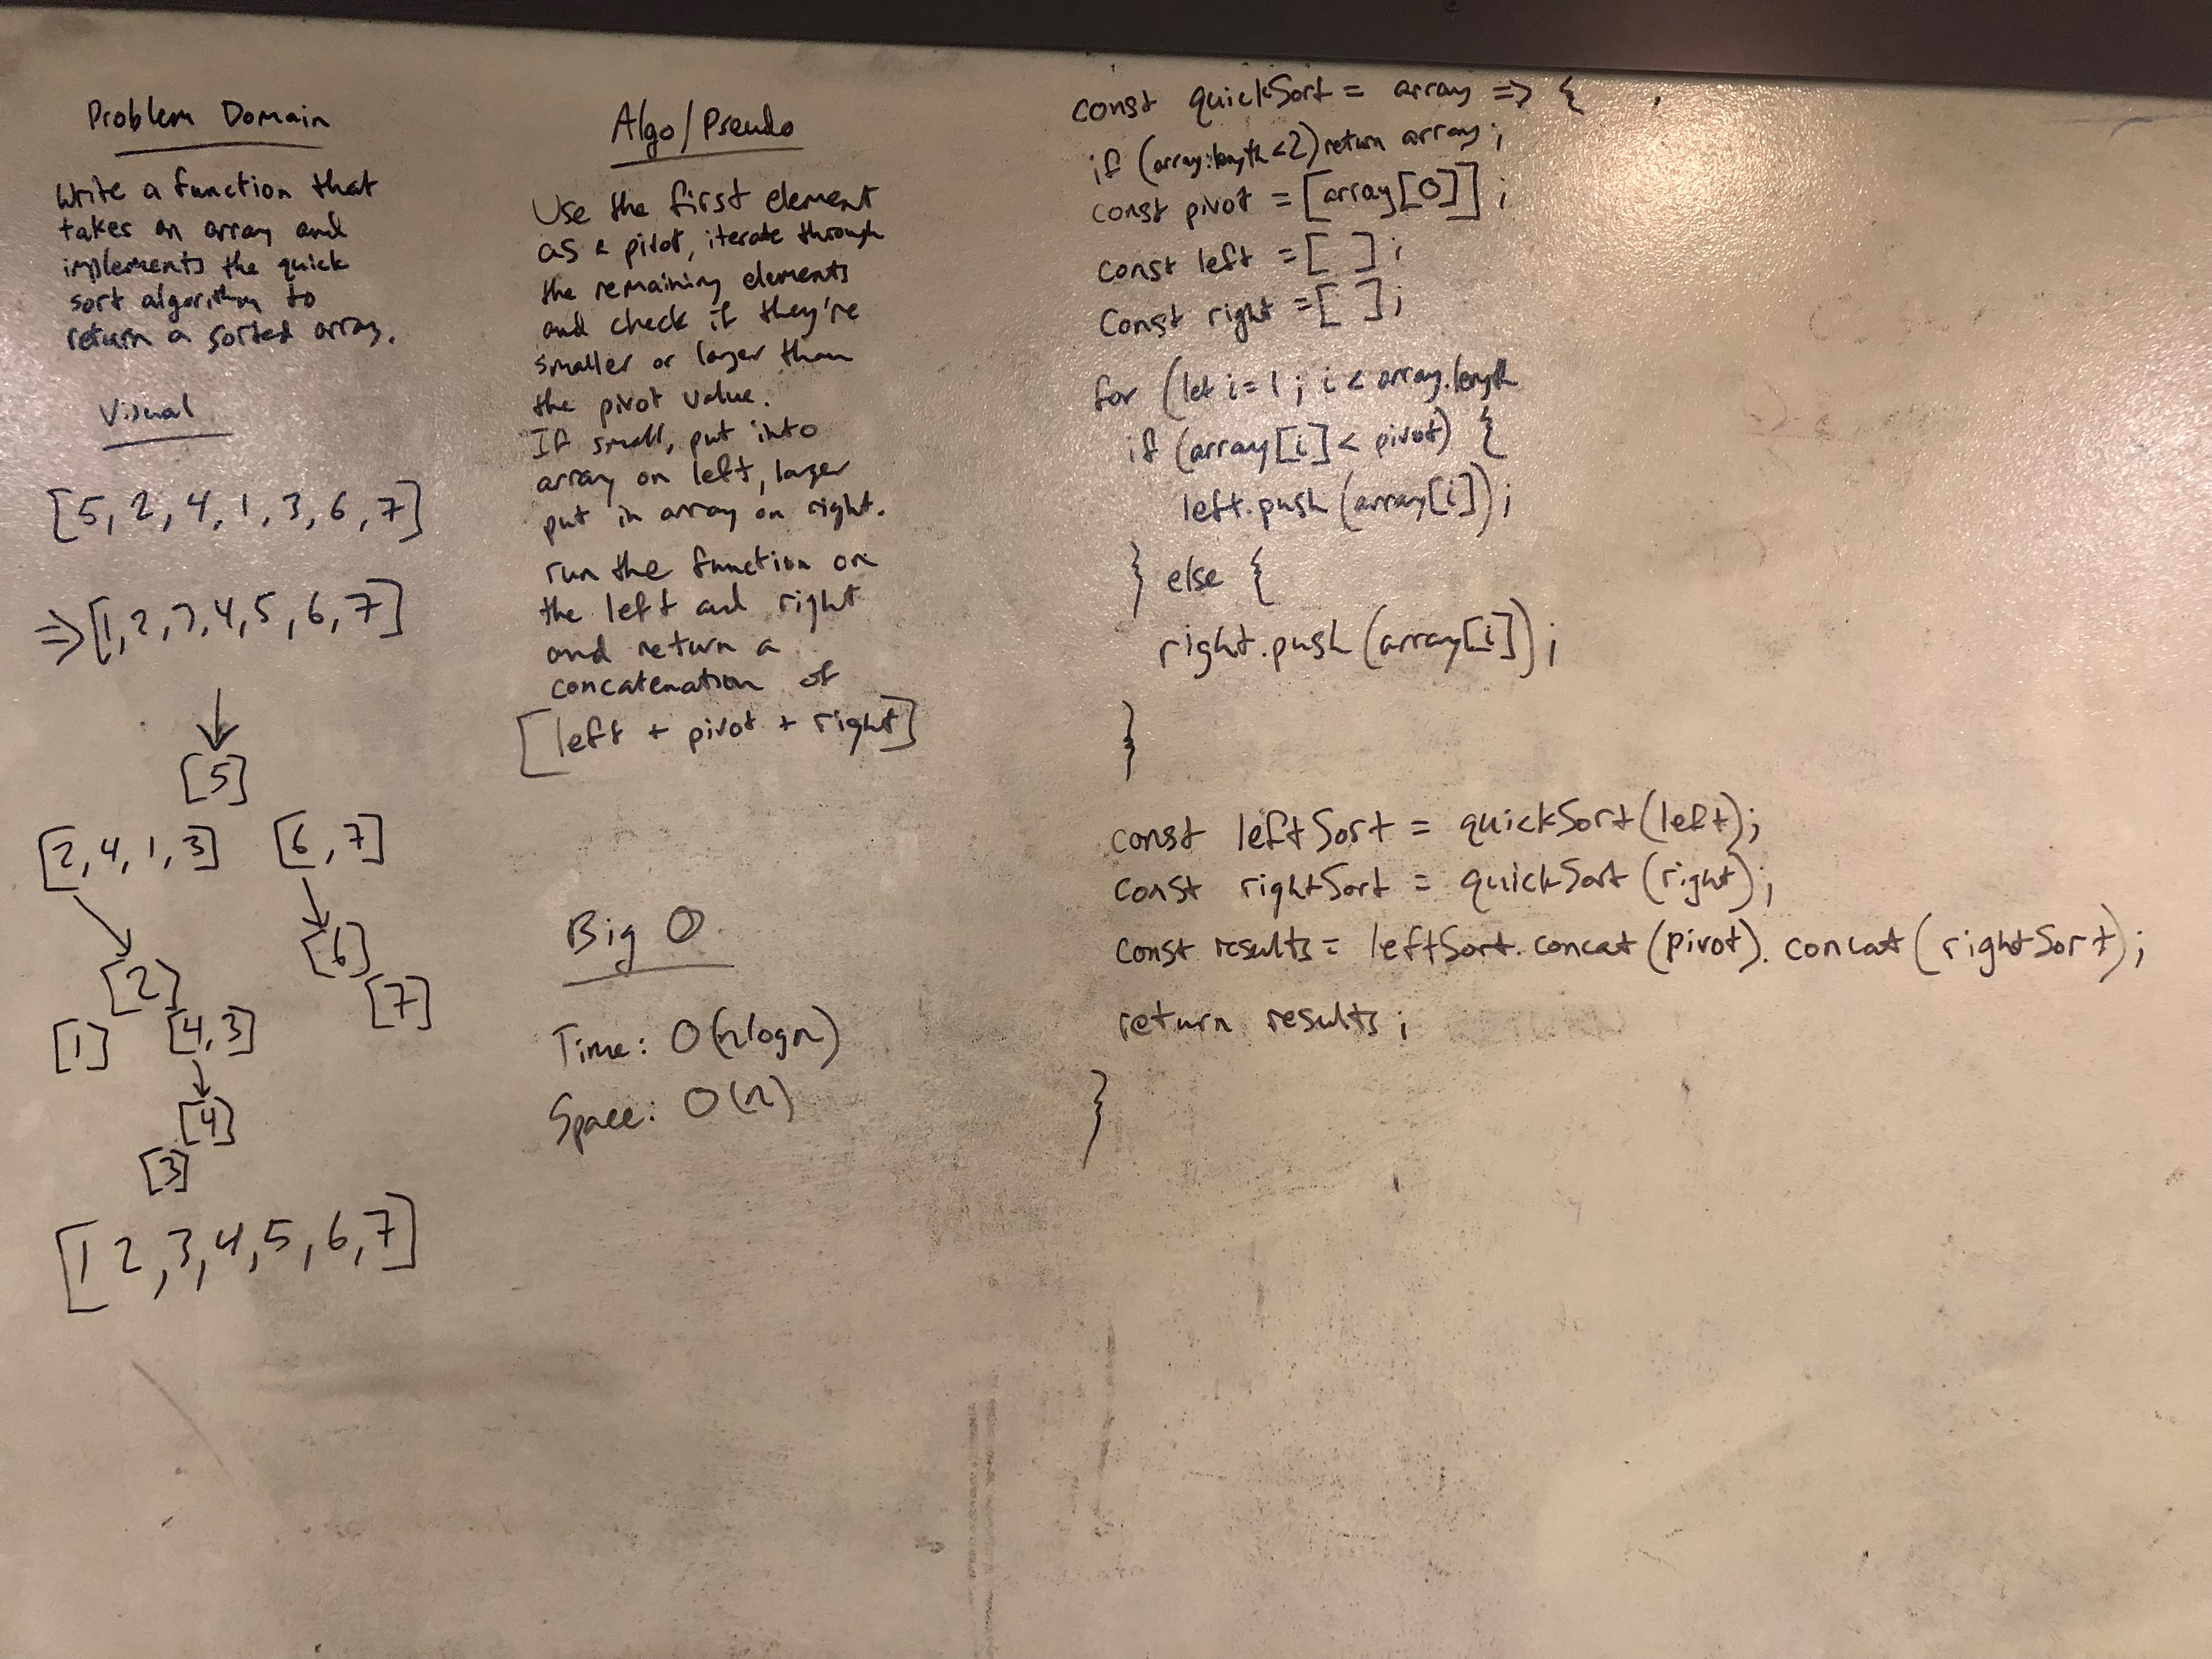 Problem Domain
Write a function that
takes an array and
implements the quick
sort algorithm to
return a sorted array.
Visual
[5, 2, 4, 1, 3, 6, 7]
⇒[1, 2, 3, 4, 5, 6, 7]
↓
[5]
[2, 4, 1, 3] [6, 7]
[2] [6]
[1] [4, 3] [7]
[4]
[3]
[1 2, 3, 4, 5, 6, 7]
Algo/Pseudo
Use the first element
as a pivot, iterate through
the remaining elements
and check if they're
smaller or larger than
the pivot value.
If small, put into
array on left, larger
put in array on right.
run the function on
the left and right
and return a
concatenation of
[left + pivot + right]
Big O
Time: O(nlogn)
Space: O(n)
const quickSort = array => {
if (array.length <2) return array;
const pivot = [array[0]];
const left = [ ];
const right = [ ];
for (let i = 1; i < array.length
if (array[i] < pivot) {
left.push(array[i]);
} else {
right.push(array[i]);
}
const leftSort = quickSort(left);
const rightSort = quickSort(right);
const results = leftSort.concat(pivot).concat(rightSort);
return results;
}